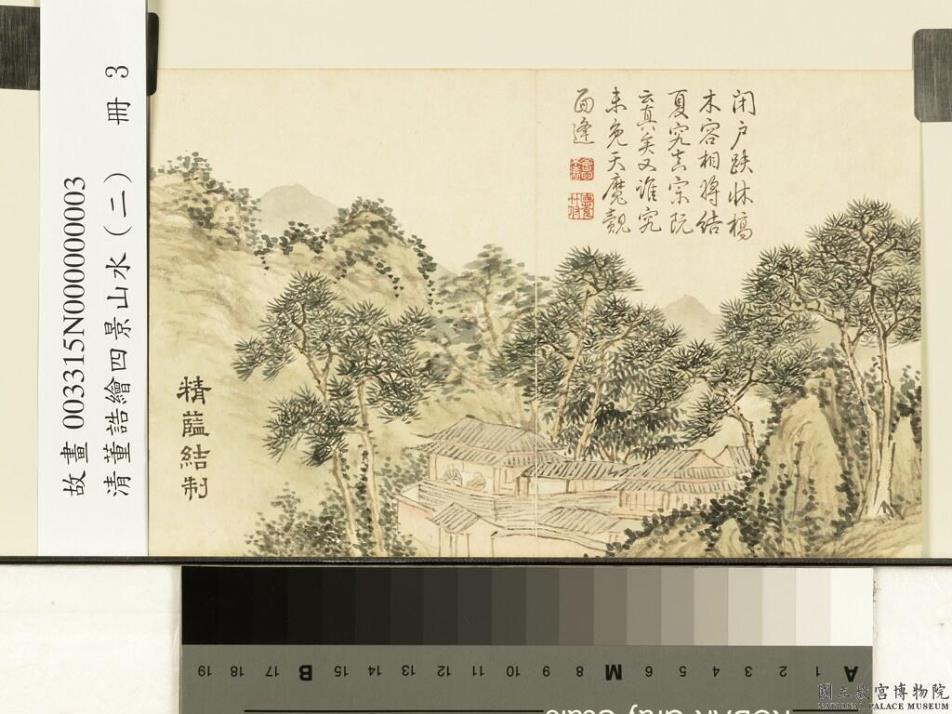 故畫 003315N000000003
清董誥繪四景山水(二) 冊 3
閉户趺牀槁
木容相將結
夏究真宗既
云真矣又誰究
未免天魔覿
面逢
精藍結制
A 1 2 3 4 5 6 M 8 9 10 11 12 13 14 15 B 17 18 19
KODAK Gray Scale
國立故宮博物院
NATIONAL PALACE MUSEUM